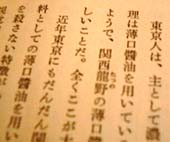 東京人は、主として濃
理は薄口醤油を用いてい
ようで、関西龍野の薄口醤
しいことだ。全くここが
近年東京にもだんだん関
料としての薄口醤油を用
を殺さない特徴が